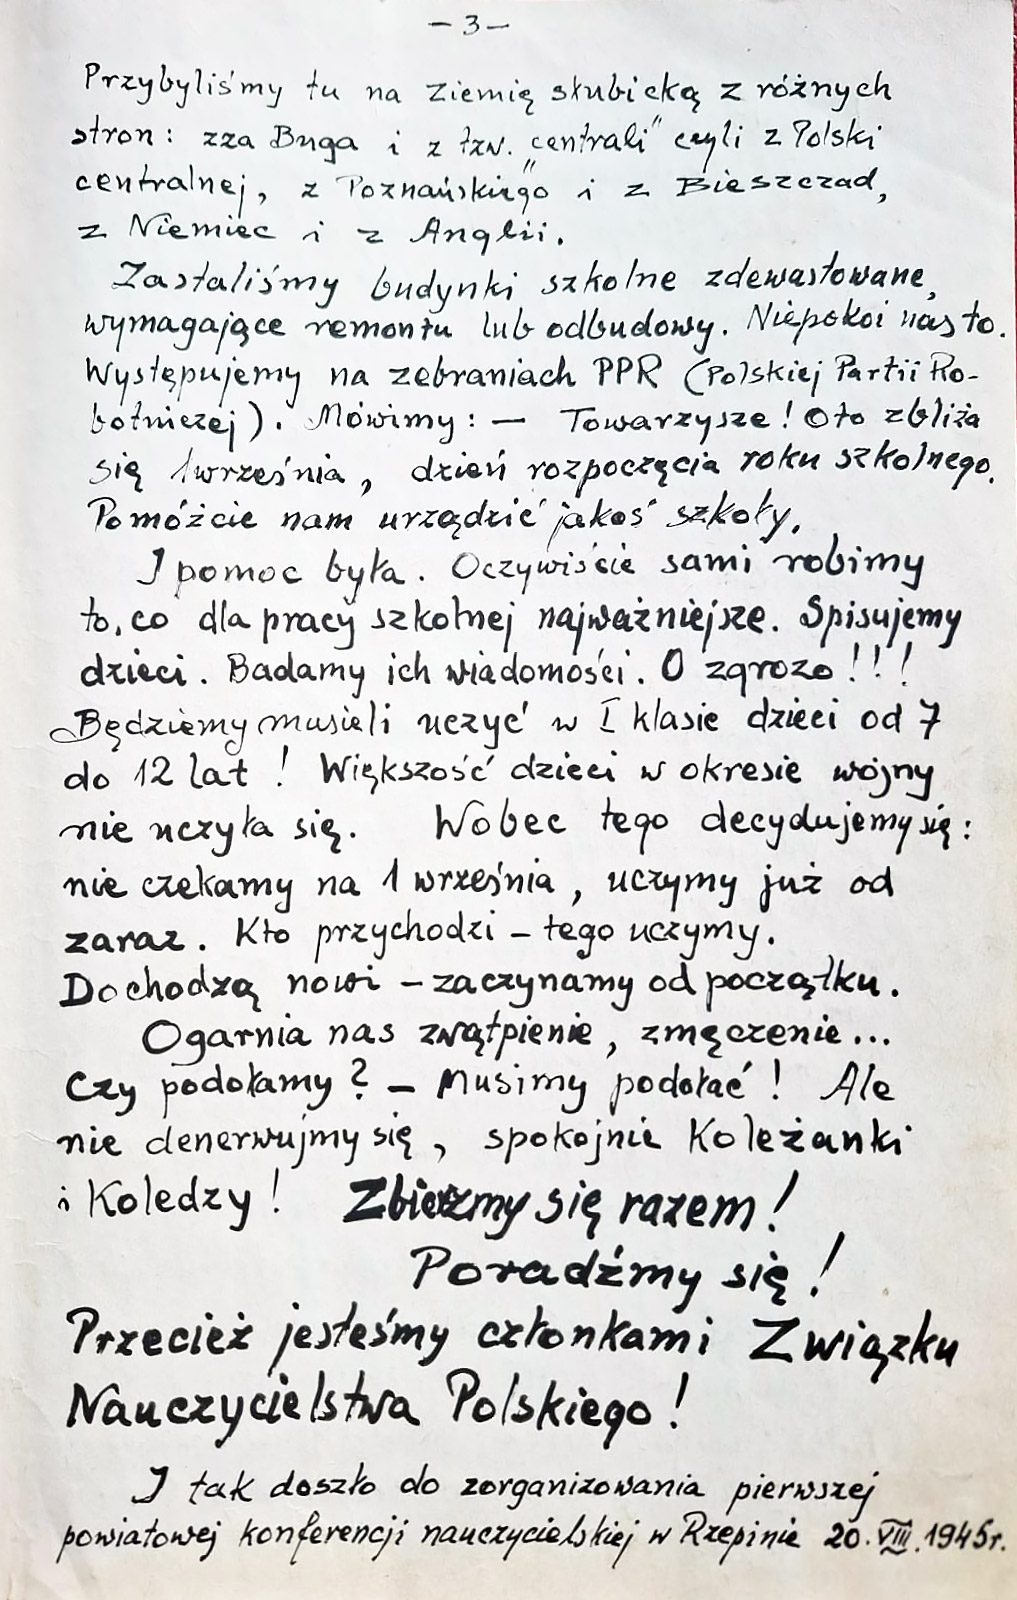 – 3 –
Przybyliśmy tu na ziemię słubicką z różnych
stron: zza Buga i z tzw. "centrali" czyli z Polski
centralnej, z Poznańskiego i z Bieszczad,
z Niemiec i z Anglii.
Zastaliśmy budynki szkolne zdewastowane,
wymagające remontu lub odbudowy. Niepokoi nas to.
Występujemy na zebraniach PPR (Polskiej Partii Ro-
botniczej). Mówimy: – Towarzysze! Oto zbliża
się 1 września, dzień rozpoczęcia roku szkolnego.
Pomóżcie nam urządzić jakoś szkoły.
I pomoc była. Oczywiście sami robimy
to, co dla pracy szkolnej najważniejsze. Spisujemy
dzieci. Badamy ich wiadomości. O zgrozo!!!
Będziemy musieli uczyć w I klasie dzieci od 7
do 12 lat! Większość dzieci w okresie wojny
nie uczyła się. Wobec tego decydujemy się:
nie czekamy na 1 września, uczymy już od
zaraz. Kto przychodzi – tego uczymy.
Dochodzą nowi – zaczynamy od początku.
Ogarnia nas zwątpienie, zmęczenie...
Czy podołamy? – Musimy podołać! Ale
nie denerwujmy się, spokojnie Koleżanki
i Koledzy! Zbierzmy się razem!
Poradźmy się!
Przecież jesteśmy członkami Związku
Nauczycielstwa Polskiego!
I tak doszło do zorganizowania pierwszej
powiatowej konferencji nauczycielskiej w Rzepinie 20.VIII.1945r.